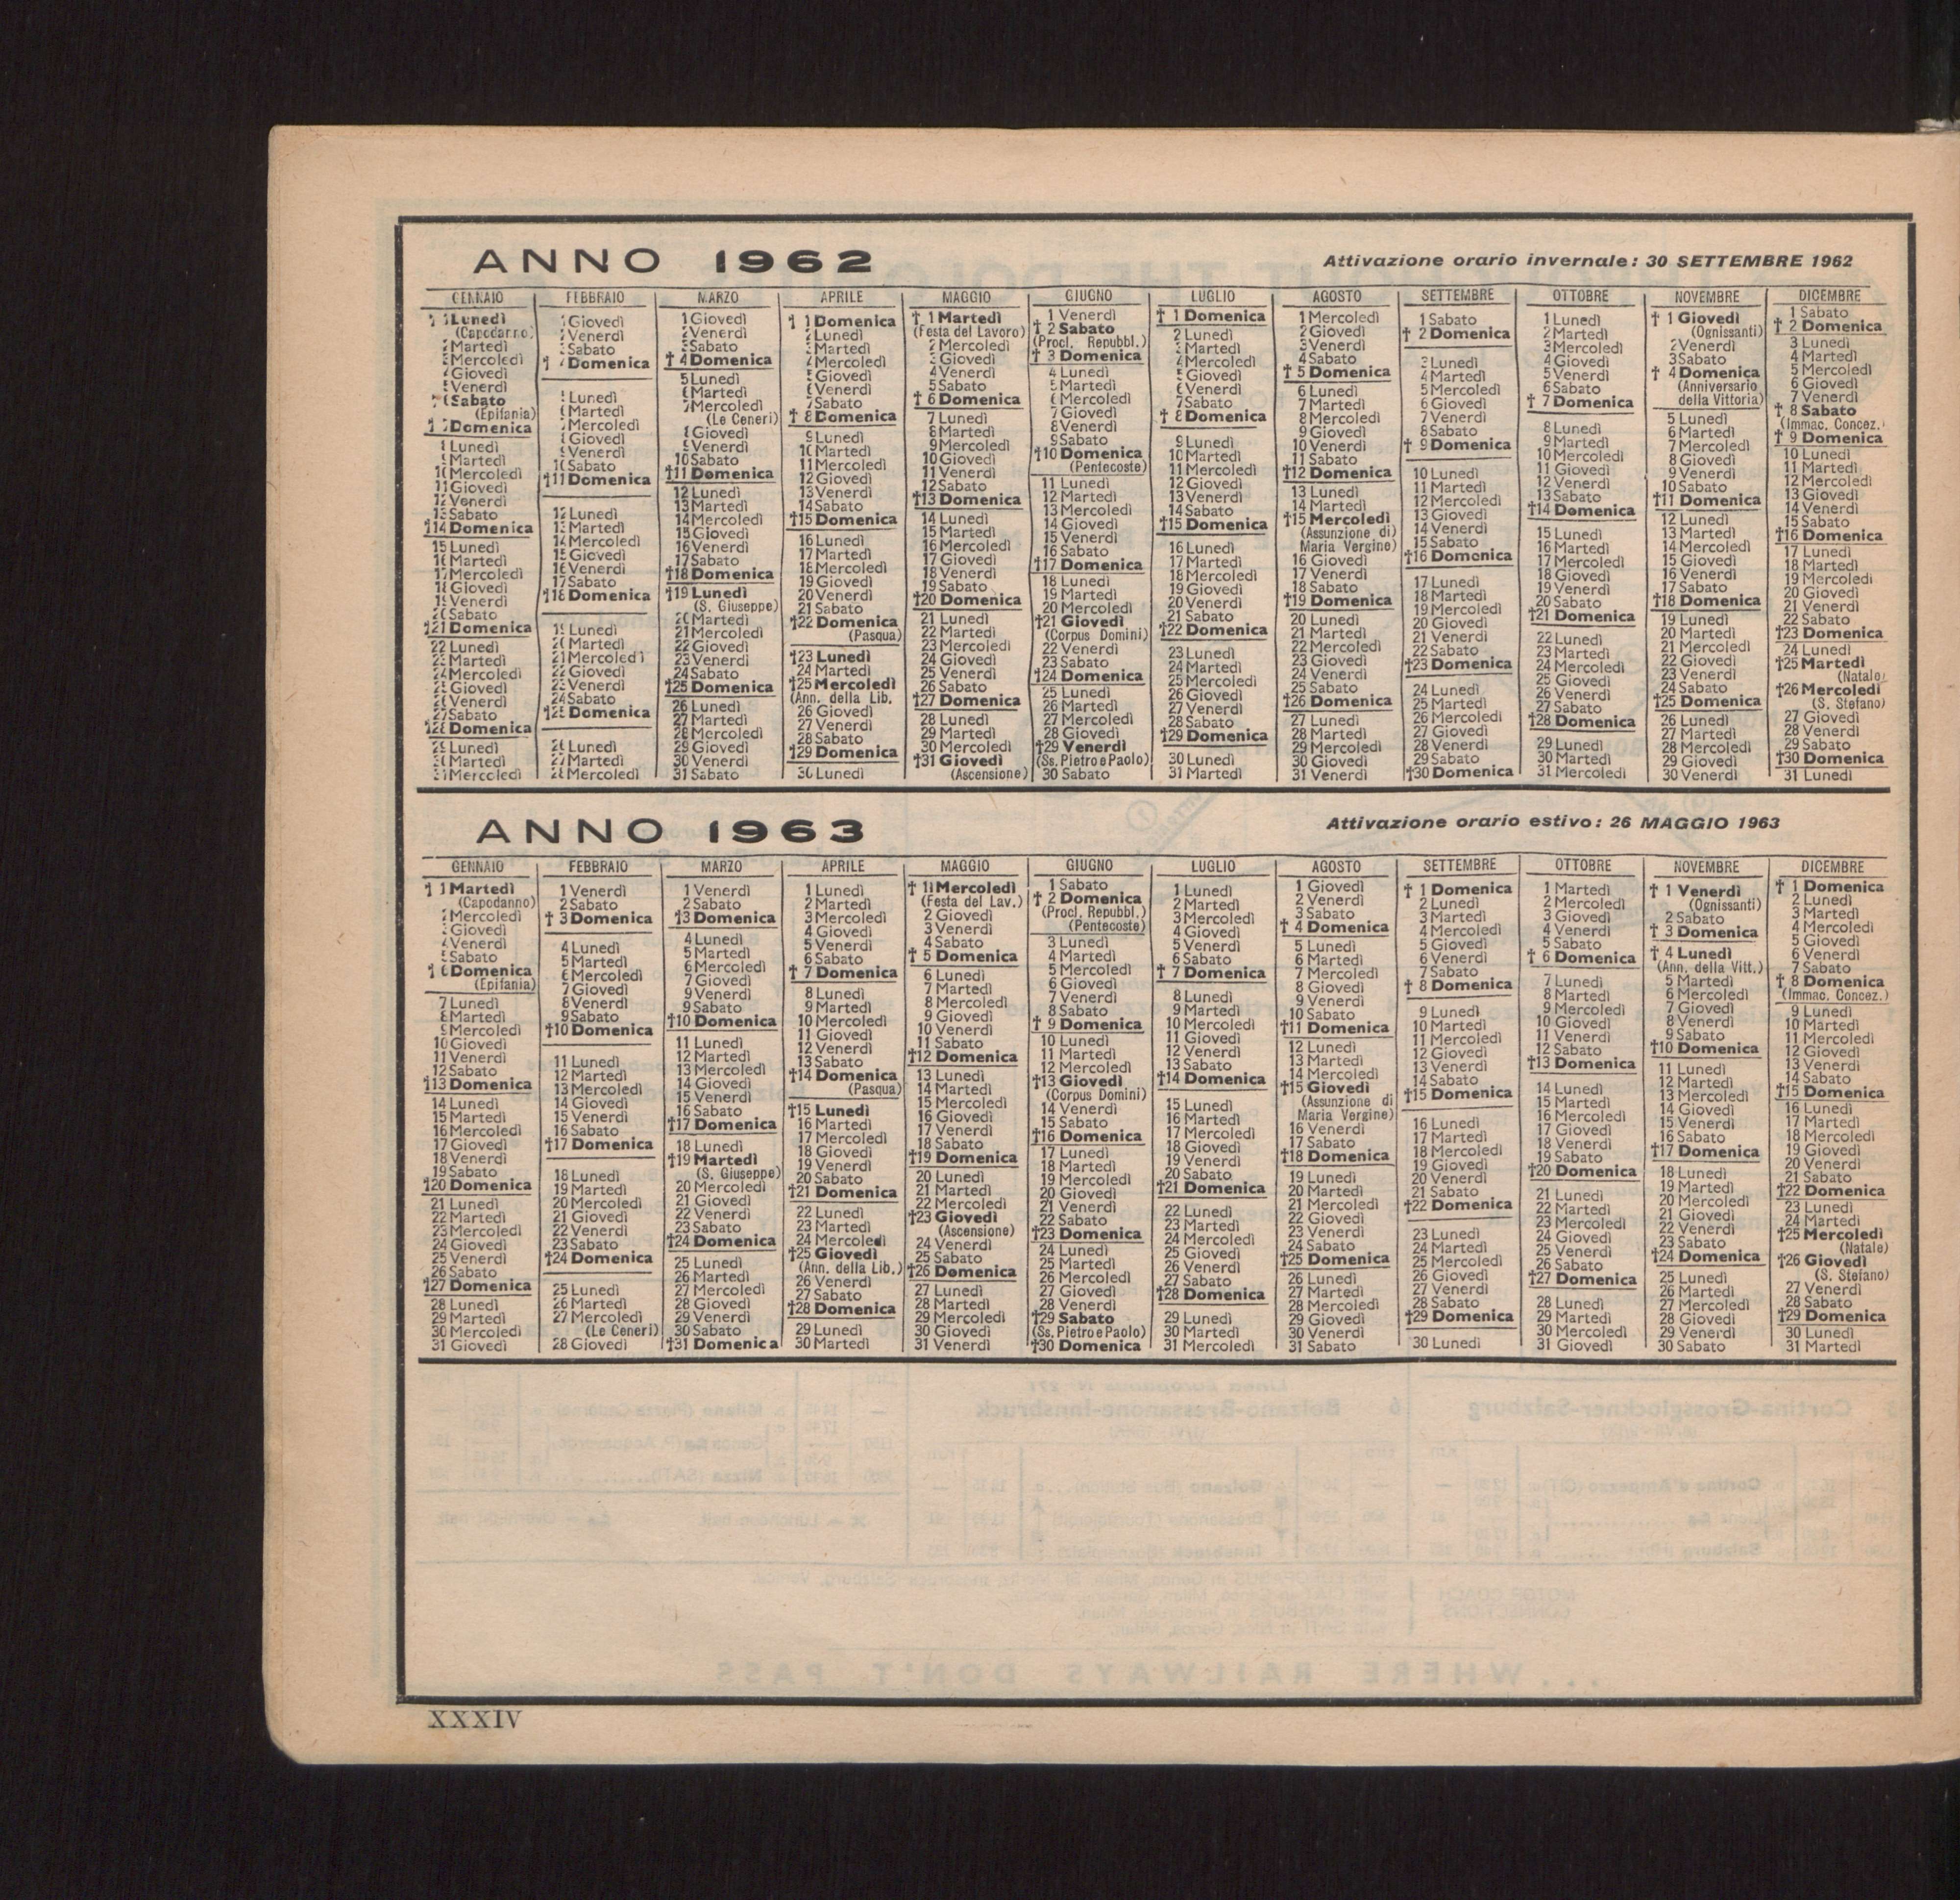 ANNO 1962
Attivazione orario invernale: 30 SETTEMBRE 1962
GENNAIO
† 1 Lunedì
(Capodanno)
2 Martedì
3 Mercoledì
4 Giovedì
5 Venerdì
† 6 Sabato
(Epifania)
† 7 Domenica
8 Lunedì
9 Martedì
10 Mercoledì
11 Giovedì
12 Venerdì
13 Sabato
†14 Domenica
15 Lunedì
16 Martedì
17 Mercoledì
18 Giovedì
19 Venerdì
20 Sabato
†21 Domenica
22 Lunedì
23 Martedì
24 Mercoledì
25 Giovedì
26 Venerdì
27 Sabato
†28 Domenica
29 Lunedì
30 Martedì
31 Mercoledì
FEBBRAIO
1 Giovedì
2 Venerdì
3 Sabato
† 4 Domenica
5 Lunedì
6 Martedì
7 Mercoledì
8 Giovedì
9 Venerdì
10 Sabato
†11 Domenica
12 Lunedì
13 Martedì
14 Mercoledì
15 Giovedì
16 Venerdì
17 Sabato
†18 Domenica
19 Lunedì
20 Martedì
21 Mercoledì
22 Giovedì
23 Venerdì
24 Sabato
†25 Domenica
26 Lunedì
27 Martedì
28 Mercoledì
MARZO
1 Giovedì
2 Venerdì
3 Sabato
† 4 Domenica
5 Lunedì
6 Martedì
7 Mercoledì
(Le Ceneri)
8 Giovedì
9 Venerdì
10 Sabato
†11 Domenica
12 Lunedì
13 Martedì
14 Mercoledì
15 Giovedì
16 Venerdì
17 Sabato
†18 Domenica
†19 Lunedì
(S. Giuseppe)
20 Martedì
21 Mercoledì
22 Giovedì
23 Venerdì
24 Sabato
†25 Domenica
26 Lunedì
27 Martedì
28 Mercoledì
29 Giovedì
30 Venerdì
31 Sabato
APRILE
† 1 Domenica
2 Lunedì
3 Martedì
4 Mercoledì
5 Giovedì
6 Venerdì
7 Sabato
† 8 Domenica
9 Lunedì
10 Martedì
11 Mercoledì
12 Giovedì
13 Venerdì
14 Sabato
†15 Domenica
16 Lunedì
17 Martedì
18 Mercoledì
19 Giovedì
20 Venerdì
21 Sabato
†22 Domenica
(Pasqua)
†23 Lunedì
24 Martedì
†25 Mercoledì
(Ann. della Lib.
26 Giovedì
27 Venerdì
28 Sabato
†29 Domenica
30 Lunedì
MAGGIO
† 1 Martedì
(Festa del Lavoro)
2 Mercoledì
3 Giovedì
4 Venerdì
5 Sabato
† 6 Domenica
7 Lunedì
8 Martedì
9 Mercoledì
10 Giovedì
11 Venerdì
12 Sabato
†13 Domenica
14 Lunedì
15 Martedì
16 Mercoledì
17 Giovedì
18 Venerdì
19 Sabato
†20 Domenica
21 Lunedì
22 Martedì
23 Mercoledì
24 Giovedì
25 Venerdì
26 Sabato
†27 Domenica
28 Lunedì
29 Martedì
30 Mercoledì
†31 Giovedì
(Ascensione)
GIUGNO
1 Venerdì
† 2 Sabato
(Procl. Repubbl.)
† 3 Domenica
4 Lunedì
5 Martedì
6 Mercoledì
7 Giovedì
8 Venerdì
9 Sabato
†10 Domenica
(Pentecoste)
11 Lunedì
12 Martedì
13 Mercoledì
14 Giovedì
15 Venerdì
16 Sabato
†17 Domenica
18 Lunedì
19 Martedì
20 Mercoledì
†21 Giovedì
(Corpus Domini)
22 Venerdì
23 Sabato
†24 Domenica
25 Lunedì
26 Martedì
27 Mercoledì
28 Giovedì
†29 Venerdì
(Ss. Pietro e Paolo)
30 Sabato
LUGLIO
† 1 Domenica
2 Lunedì
3 Martedì
4 Mercoledì
5 Giovedì
6 Venerdì
7 Sabato
† 8 Domenica
9 Lunedì
10 Martedì
11 Mercoledì
12 Giovedì
13 Venerdì
14 Sabato
†15 Domenica
16 Lunedì
17 Martedì
18 Mercoledì
19 Giovedì
20 Venerdì
21 Sabato
†22 Domenica
23 Lunedì
24 Martedì
25 Mercoledì
26 Giovedì
27 Venerdì
28 Sabato
†29 Domenica
30 Lunedì
31 Martedì
AGOSTO
1 Mercoledì
2 Giovedì
3 Venerdì
4 Sabato
† 5 Domenica
6 Lunedì
7 Martedì
8 Mercoledì
9 Giovedì
10 Venerdì
11 Sabato
†12 Domenica
13 Lunedì
14 Martedì
†15 Mercoledì
(Assunzione di)
Maria Vergine)
16 Giovedì
17 Venerdì
18 Sabato
†19 Domenica
20 Lunedì
21 Martedì
22 Mercoledì
23 Giovedì
24 Venerdì
25 Sabato
†26 Domenica
27 Lunedì
28 Martedì
29 Mercoledì
30 Giovedì
31 Venerdì
SETTEMBRE
1 Sabato
† 2 Domenica
3 Lunedì
4 Martedì
5 Mercoledì
6 Giovedì
7 Venerdì
8 Sabato
† 9 Domenica
10 Lunedì
11 Martedì
12 Mercoledì
13 Giovedì
14 Venerdì
15 Sabato
†16 Domenica
17 Lunedì
18 Martedì
19 Mercoledì
20 Giovedì
21 Venerdì
22 Sabato
†23 Domenica
24 Lunedì
25 Martedì
26 Mercoledì
27 Giovedì
28 Venerdì
29 Sabato
†30 Domenica
OTTOBRE
1 Lunedì
2 Martedì
3 Mercoledì
4 Giovedì
5 Venerdì
6 Sabato
† 7 Domenica
8 Lunedì
9 Martedì
10 Mercoledì
11 Giovedì
12 Venerdì
13 Sabato
†14 Domenica
15 Lunedì
16 Martedì
17 Mercoledì
18 Giovedì
19 Venerdì
20 Sabato
†21 Domenica
22 Lunedì
23 Martedì
24 Mercoledì
25 Giovedì
26 Venerdì
27 Sabato
†28 Domenica
29 Lunedì
30 Martedì
31 Mercoledì
NOVEMBRE
† 1 Giovedì
(Ognissanti)
2 Venerdì
3 Sabato
† 4 Domenica
(Anniversario
della Vittoria)
5 Lunedì
6 Martedì
7 Mercoledì
8 Giovedì
9 Venerdì
10 Sabato
†11 Domenica
12 Lunedì
13 Martedì
14 Mercoledì
15 Giovedì
16 Venerdì
17 Sabato
†18 Domenica
19 Lunedì
20 Martedì
21 Mercoledì
22 Giovedì
23 Venerdì
24 Sabato
†25 Domenica
26 Lunedì
27 Martedì
28 Mercoledì
29 Giovedì
30 Venerdì
DICEMBRE
1 Sabato
† 2 Domenica
3 Lunedì
4 Martedì
5 Mercoledì
6 Giovedì
7 Venerdì
† 8 Sabato
(Immac. Concez.)
† 9 Domenica
10 Lunedì
11 Martedì
12 Mercoledì
13 Giovedì
14 Venerdì
15 Sabato
†16 Domenica
17 Lunedì
18 Martedì
19 Mercoledì
20 Giovedì
21 Venerdì
22 Sabato
†23 Domenica
24 Lunedì
†25 Martedì
(Natale)
†26 Mercoledì
(S. Stefano)
27 Giovedì
28 Venerdì
29 Sabato
†30 Domenica
31 Lunedì
ANNO 1963
Attivazione orario estivo: 26 MAGGIO 1963
GENNAIO
† 1 Martedì
(Capodanno)
2 Mercoledì
3 Giovedì
4 Venerdì
5 Sabato
† 6 Domenica
(Epifania)
7 Lunedì
8 Martedì
9 Mercoledì
10 Giovedì
11 Venerdì
12 Sabato
†13 Domenica
14 Lunedì
15 Martedì
16 Mercoledì
17 Giovedì
18 Venerdì
19 Sabato
†20 Domenica
21 Lunedì
22 Martedì
23 Mercoledì
24 Giovedì
25 Venerdì
26 Sabato
†27 Domenica
28 Lunedì
29 Martedì
30 Mercoledì
31 Giovedì
FEBBRAIO
1 Venerdì
2 Sabato
† 3 Domenica
4 Lunedì
5 Martedì
6 Mercoledì
7 Giovedì
8 Venerdì
9 Sabato
†10 Domenica
11 Lunedì
12 Martedì
13 Mercoledì
14 Giovedì
15 Venerdì
16 Sabato
†17 Domenica
18 Lunedì
19 Martedì
20 Mercoledì
21 Giovedì
22 Venerdì
23 Sabato
†24 Domenica
25 Lunedì
26 Martedì
27 Mercoledì
(Le Ceneri)
28 Giovedì
MARZO
1 Venerdì
2 Sabato
†3 Domenica
4 Lunedì
5 Martedì
6 Mercoledì
7 Giovedì
9 Venerdì
9 Sabato
†10 Domenica
11 Lunedì
12 Martedì
13 Mercoledì
14 Giovedì
15 Venerdì
16 Sabato
†17 Domenica
18 Lunedì
†19 Martedì
(S. Giuseppe)
20 Mercoledì
21 Giovedì
22 Venerdì
23 Sabato
†24 Domenica
25 Lunedì
26 Martedì
27 Mercoledì
28 Giovedì
29 Venerdì
30 Sabato
†31 Domenica
APRILE
1 Lunedì
2 Martedì
3 Mercoledì
4 Giovedì
5 Venerdì
6 Sabato
† 7 Domenica
8 Lunedì
9 Martedì
10 Mercoledì
11 Giovedì
12 Venerdì
13 Sabato
†14 Domenica
(Pasqua)
†15 Lunedì
16 Martedì
17 Mercoledì
18 Giovedì
19 Venerdì
20 Sabato
†21 Domenica
22 Lunedì
23 Martedì
24 Mercoledì
†25 Giovedì
(Ann. della Lib.)
26 Venerdì
27 Sabato
†28 Domenica
29 Lunedì
30 Martedì
MAGGIO
† 1 Mercoledì
(Festa del Lav.)
2 Giovedì
3 Venerdì
4 Sabato
† 5 Domenica
6 Lunedì
7 Martedì
8 Mercoledì
9 Giovedì
10 Venerdì
11 Sabato
†12 Domenica
13 Lunedì
14 Martedì
15 Mercoledì
16 Giovedì
17 Venerdì
18 Sabato
†19 Domenica
20 Lunedì
21 Martedì
22 Mercoledì
†23 Giovedì
(Ascensione)
24 Venerdì
25 Sabato
†26 Domenica
27 Lunedì
28 Martedì
29 Mercoledì
30 Giovedì
31 Venerdì
GIUGNO
1 Sabato
† 2 Domenica
(Procl. Repubbl.)
(Pentecoste)
3 Lunedì
4 Martedì
5 Mercoledì
6 Giovedì
7 Venerdì
8 Sabato
† 9 Domenica
10 Lunedì
11 Martedì
12 Mercoledì
†13 Giovedì
(Corpus Domini)
14 Venerdì
15 Sabato
†16 Domenica
17 Lunedì
18 Martedì
19 Mercoledì
20 Giovedì
21 Venerdì
22 Sabato
†23 Domenica
24 Lunedì
25 Martedì
26 Mercoledì
27 Giovedì
28 Venerdì
†29 Sabato
(Ss. Pietro e Paolo)
†30 Domenica
LUGLIO
1 Lunedì
2 Martedì
3 Mercoledì
4 Giovedì
5 Venerdì
6 Sabato
† 7 Domenica
8 Lunedì
9 Martedì
10 Mercoledì
11 Giovedì
12 Venerdì
13 Sabato
†14 Domenica
15 Lunedì
16 Martedì
17 Mercoledì
18 Giovedì
19 Venerdì
20 Sabato
†21 Domenica
22 Lunedì
23 Martedì
24 Mercoledì
25 Giovedì
26 Venerdì
27 Sabato
†28 Domenica
29 Lunedì
30 Martedì
31 Mercoledì
AGOSTO
1 Giovedì
2 Venerdì
3 Sabato
† 4 Domenica
5 Lunedì
6 Martedì
7 Mercoledì
8 Giovedì
9 Venerdì
10 Sabato
†11 Domenica
12 Lunedì
13 Martedì
14 Mercoledì
†15 Giovedì
(Assunzione di
Maria Vergine)
16 Venerdì
17 Sabato
†18 Domenica
19 Lunedì
20 Martedì
21 Mercoledì
22 Giovedì
23 Venerdì
24 Sabato
†25 Domenica
26 Lunedì
27 Martedì
28 Mercoledì
29 Giovedì
30 Venerdì
31 Sabato
SETTEMBRE
† 1 Domenica
2 Lunedì
3 Martedì
4 Mercoledì
5 Giovedì
6 Venerdì
7 Sabato
† 8 Domenica
9 Lunedì
10 Martedì
11 Mercoledì
12 Giovedì
13 Venerdì
14 Sabato
†15 Domenica
16 Lunedì
17 Martedì
18 Mercoledì
19 Giovedì
20 Venerdì
21 Sabato
†22 Domenica
23 Lunedì
24 Martedì
25 Mercoledì
26 Giovedì
27 Venerdì
28 Sabato
†29 Domenica
30 Lunedì
OTTOBRE
1 Martedì
2 Mercoledì
3 Giovedì
4 Venerdì
5 Sabato
† 6 Domenica
7 Lunedì
8 Martedì
9 Mercoledì
10 Giovedì
11 Venerdì
12 Sabato
†13 Domenica
14 Lunedì
15 Martedì
16 Mercoledì
17 Giovedì
18 Venerdì
19 Sabato
†20 Domenica
21 Lunedì
22 Martedì
23 Mercoledì
24 Giovedì
25 Venerdì
26 Sabato
†27 Domenica
28 Lunedì
29 Martedì
30 Mercoledì
31 Giovedì
NOVEMBRE
† 1 Venerdì
(Ognissanti)
2 Sabato
† 3 Domenica
† 4 Lunedì
(Ann. della Vitt.)
5 Martedì
6 Mercoledì
7 Giovedì
8 Venerdì
9 Sabato
†10 Domenica
11 Lunedì
12 Martedì
13 Mercoledì
14 Giovedì
15 Venerdì
16 Sabato
†17 Domenica
18 Lunedì
19 Martedì
20 Mercoledì
21 Giovedì
22 Venerdì
23 Sabato
†24 Domenica
25 Lunedì
26 Martedì
27 Mercoledì
28 Giovedì
29 Venerdì
30 Sabato
DICEMBRE
† 1 Domenica
2 Lunedì
3 Martedì
4 Mercoledì
5 Giovedì
6 Venerdì
7 Sabato
† 8 Domenica
(Immac. Concez.)
9 Lunedì
10 Martedì
11 Mercoledì
12 Giovedì
13 Venerdì
14 Sabato
†15 Domenica
16 Lunedì
17 Martedì
18 Mercoledì
19 Giovedì
20 Venerdì
21 Sabato
†22 Domenica
23 Lunedì
24 Martedì
†25 Mercoledì
(Natale)
†26 Giovedì
(S. Stefano)
27 Venerdì
28 Sabato
†29 Domenica
30 Lunedì
31 Martedì
XXXIV